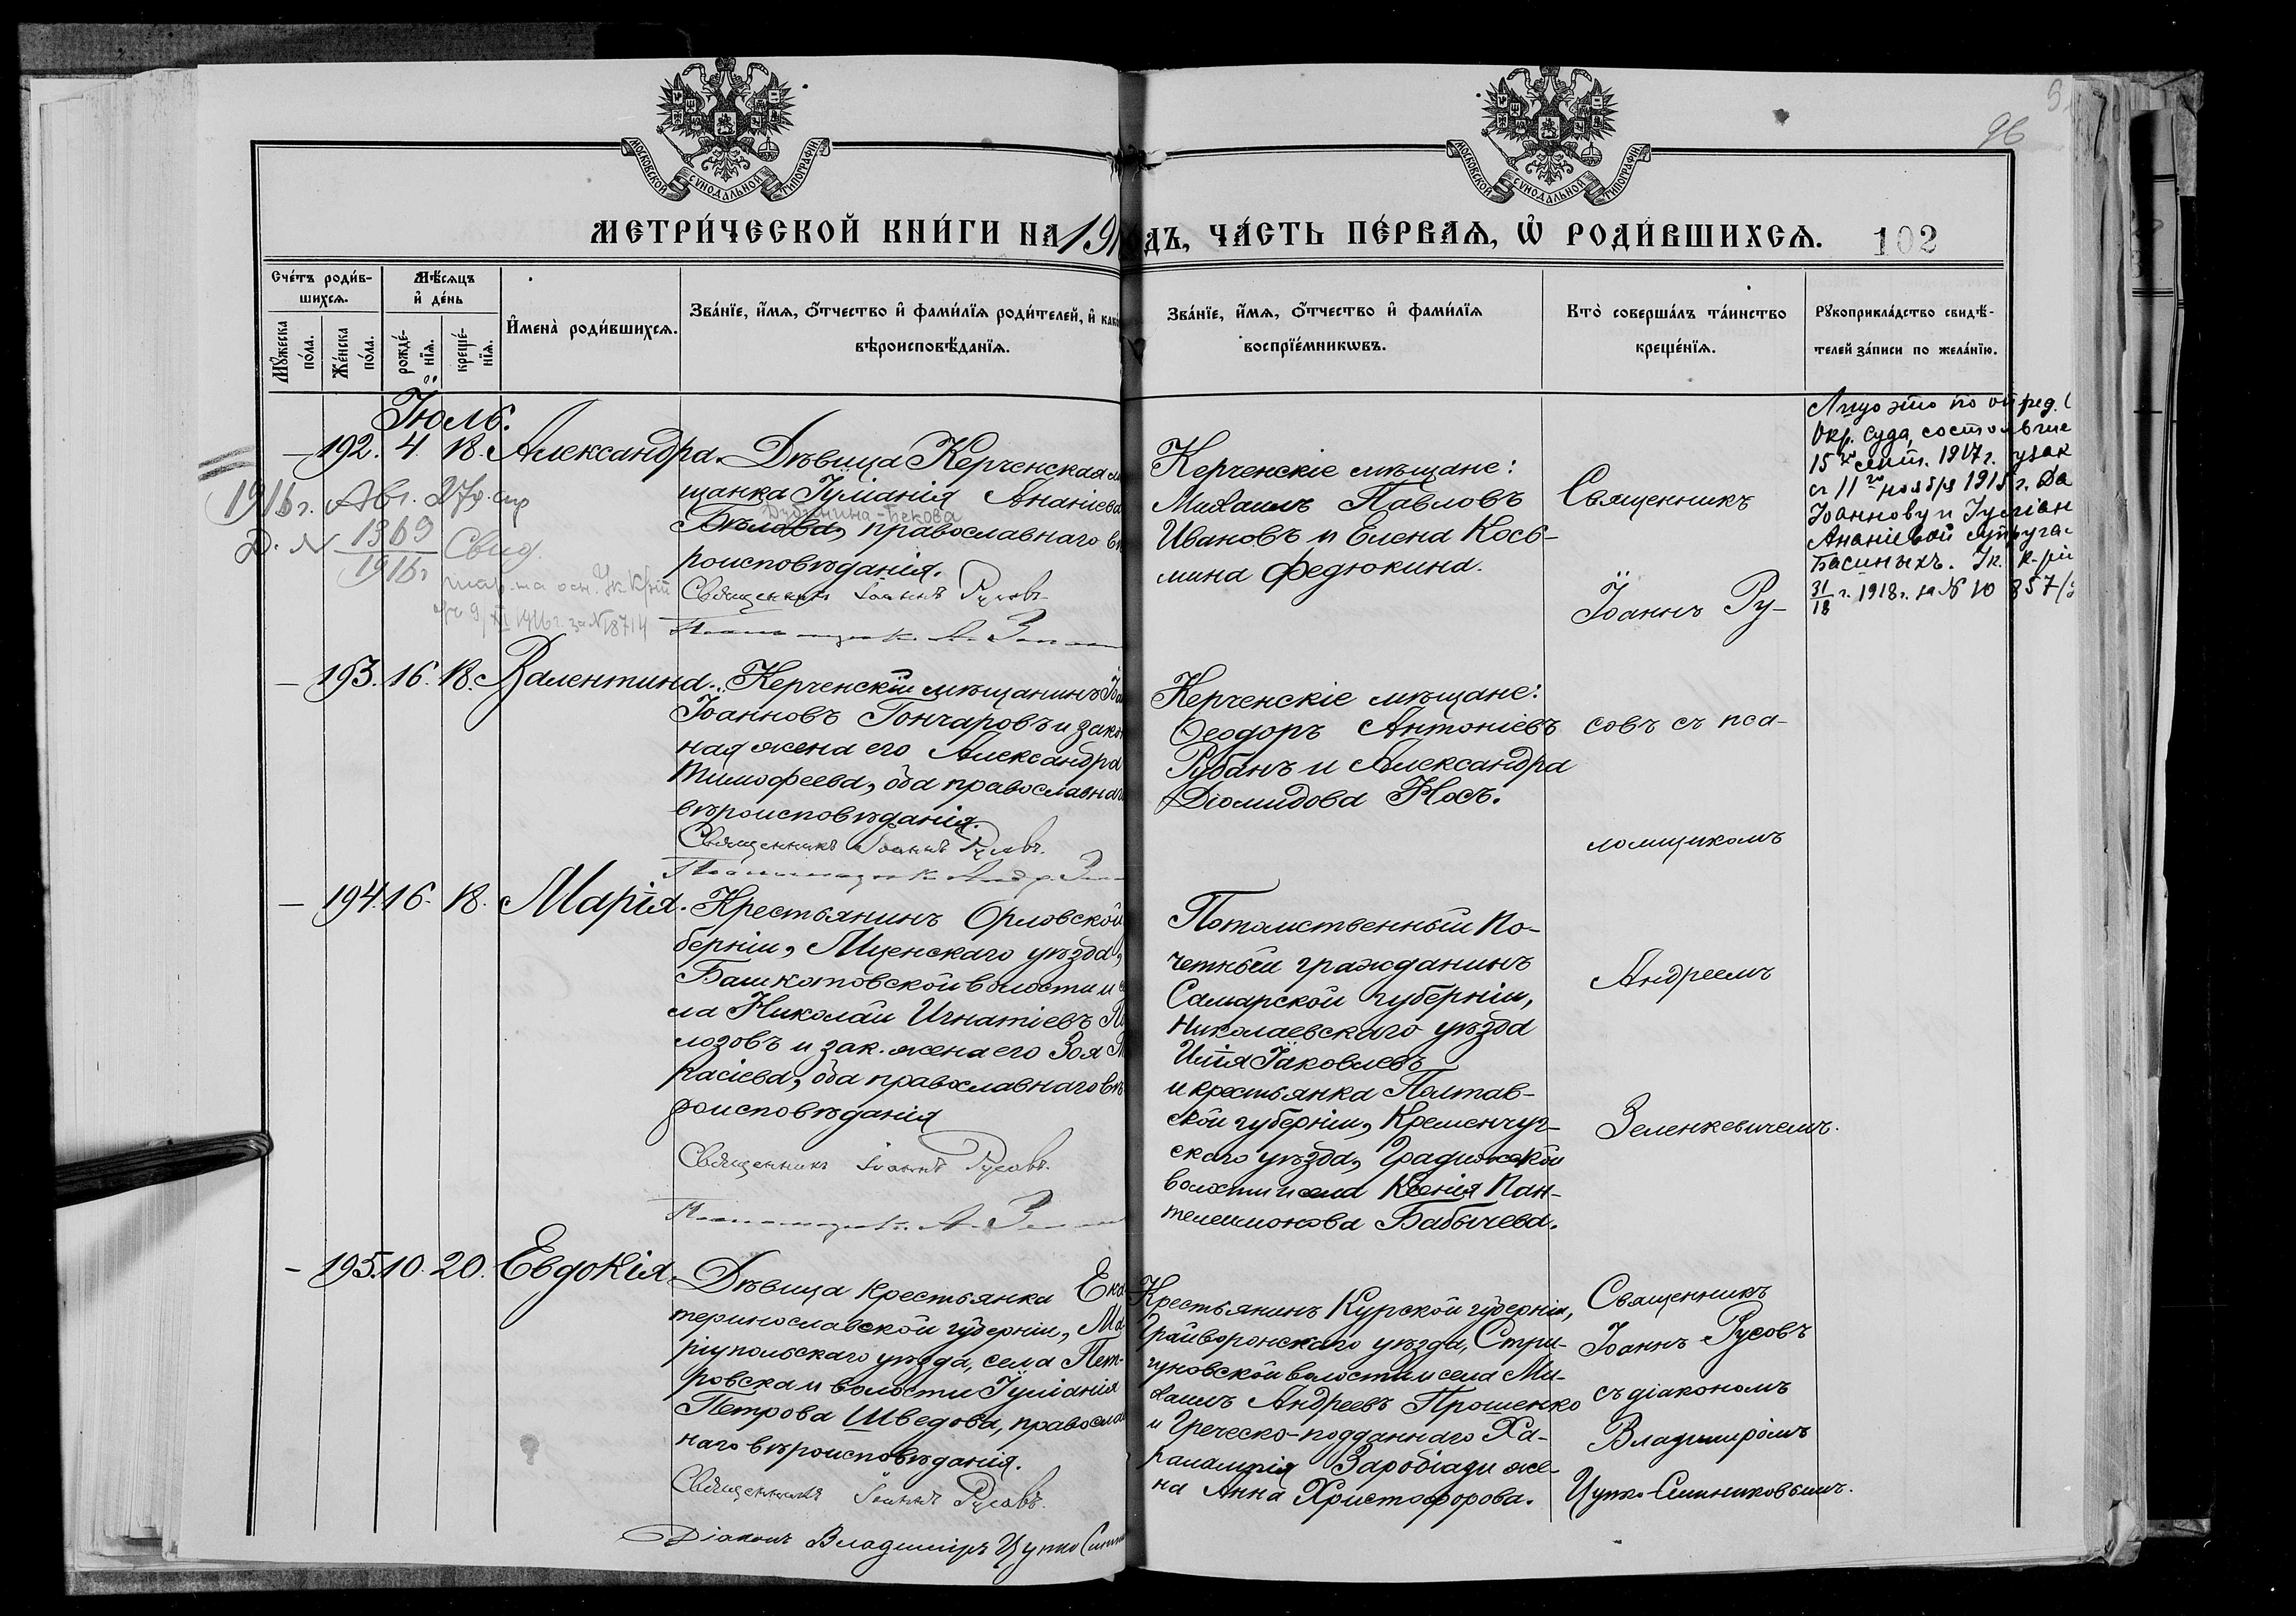 МОСКОВСКОЙ СѴНОДАЛЬНОЙ ТИПОГРАФІИ
МОСКОВСКОЙ СѴНОДАЛЬНОЙ ТИПОГРАФІИ
96
МЕТРИ́ЧЕСКОЙ КНИ́ГИ НА 191
ДЪ, ЧА́СТЬ ПЕ́РВАѦ, Ѡ҆ РОДИ́ВШИХСѦ. 102
Сче́тъ роди́в-
шихсѧ.
Мѣ́сѧцъ
и҆ де́нь
Мꙋ́жеска
по́ла.
Же́нска
по́ла.
рожде́-
нїѧ.
креще́-
нїѧ.
И҆мена̀ роди́вшихсѧ.
Зва́нїе, и҆́мѧ, о҆́тчество и҆ фами́лїѧ роди́телей, и҆ как
вѣроисповѣ́данїѧ.
Зва́нїе, и҆́мѧ, о҆́тчество и҆ фами́лїѧ
воспрїе́мникѡвъ.
Кто̀ соверша́лъ та́инство
креще́нїѧ.
Рꙋкоприкла́дство свидѣ́-
телей за́писи по жела́нїю.
Іюль.
— 192. 4. 18. Александра.
Дѣвица Керченская м
щанка Іуліанія Ананіева
Дубинина-Бекова
Бѣлова, православнаго вѣ
роисповѣданія.
Священникъ Іоаннъ Русовъ.
1916 г. Авг. 27
Д. № 1369
1916 г
Свид.
№ 18714
Керченскіе мѣщане:
Михаилъ Павловъ
Ивановъ и Елена Кось-
мина Федюкина.
Священникъ
Іоаннъ Ру-
Лицо это по опред.
Окр. Суда, состоявше
15го сент. 1917 г. узак
съ 11го ноября 1915 г. Да
Іоаннову и Іуліан
Ананіевой супруга
Басиныхъ. Ук. к-ріи
31/18 г. 1918 г. за № 10857
— 193. 16. 18. Валентина.
Керченскій мѣщанинъ Іоа
Іоанновъ Гончаровъ и закон
ная жена его Александра
Тимофеева, оба православнаго
вѣроисповѣданія.
Священникъ Іоаннъ Русовъ.
Керченскіе мѣщане:
Ѳеодоръ Антоніевъ
Рубанъ и Александра
Діомидова Носъ.
совъ съ пса-
ломщикомъ
— 194. 16. 18. Марія.
Крестьянинъ Орловской
берніи, Мценскаго уѣзда,
Башкатовской волости и с
ла Николай Игнатіевъ
лозовъ и зак. жена его Зоя
касіева, оба православнаго вѣ
роисповѣданія
Священникъ Іоаннъ Русовъ.
Потомственный По-
четный гражданинъ
Самарской губерніи,
Николаевскаго уѣзда
Илія Іаковлевъ
и крестьянка Полтав-
ской губерніи, Кременчуг-
скаго уѣзда, Градижской
волости и села Ксенія Пан-
телеимонова Бабычева.
Андреемъ
Зеленкевичемъ.
— 195. 10. 20. Евдокія.
Дѣвица крестьянка Ека
теринославской губерніи, Ма
ріупольскаго уѣзда, села Пет-
ровска и волости Іуліанія
Петрова Шведова, православ
наго вѣроисповѣданія.
Священникъ Іоаннъ Русовъ.
Діаконъ Владиміръ Цупко
Крестьянинъ Курской губерніи,
Грайворонскаго уѣзда, Стри-
гуновской волости и села Ми-
хаилъ Андреевъ Прошенко
и Греческо-подданнаго Ха-
лампія Заробіади же-
на Анна Христофорова.
Священникъ
Іоаннъ Русовъ
съ діакономъ
Владиміромъ
Цупко-Слинниковымъ.